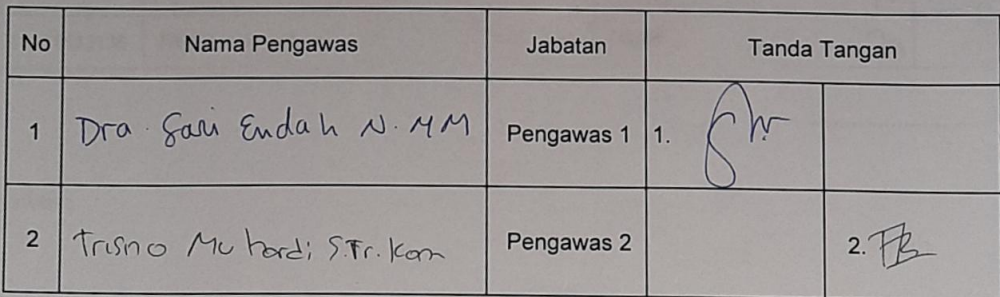 No Nama Pengawas Jabatan Tanda Tangan
1 Dra. Sari Endah N. MM Pengawas 1 1.
2 Trisno Muhardi S.Tr.Kom Pengawas 2 2.